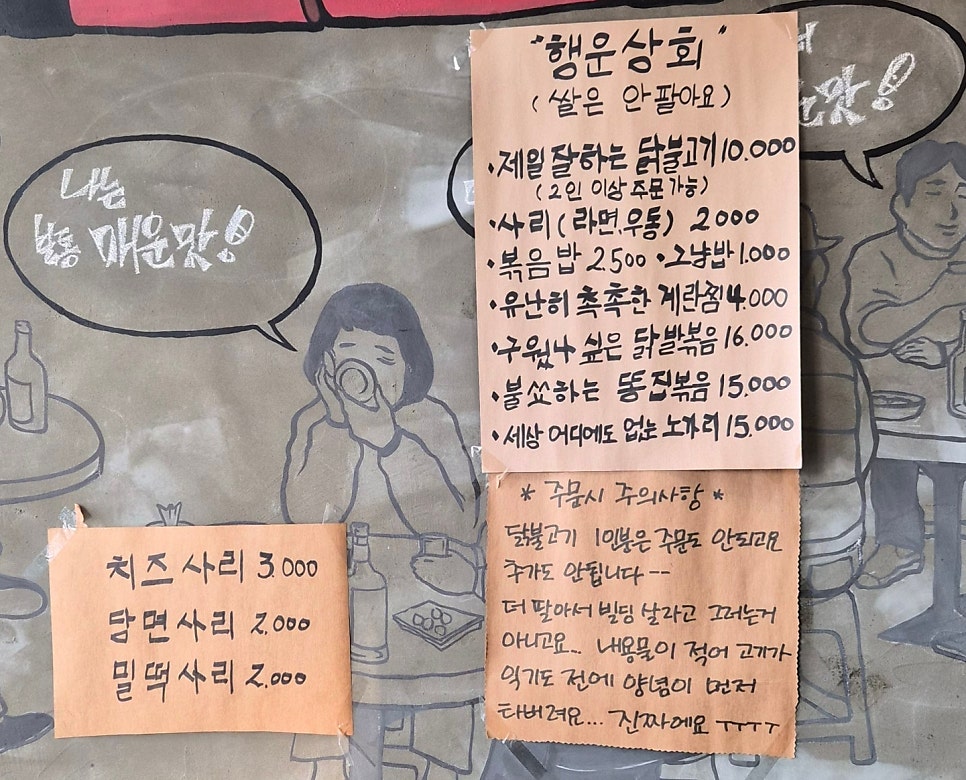 나는
보통 매운맛!
맛!
"행운상회"
(쌀은 안 팔아요)
•제일 잘하는 닭불고기 10.000
(2인 이상 주문 가능)
•사리(라면,우동) 2000
•볶음밥 2.500 •그냥밥 1.000
•유난히 촉촉한 계란찜 4.000
•구웠나 싶은 닭발볶음 16.000
•불쑈하는 똥집볶음 15.000
•세상 어디에도 없는 노가리 15.000
* 주문시 주의사항 *
닭불고기 1인분은 주문도 안되고요
추가도 안됩니다--
더 팔아서 빌딩 살라고 그러는거
아니고요... 내용물이 적어 고기가
익기도 전에 양념이 먼저
타버려요... 진짜에요 ㅜㅜㅜㅜ
치즈사리 3.000
당면사리 2.000
밀떡사리 2.000